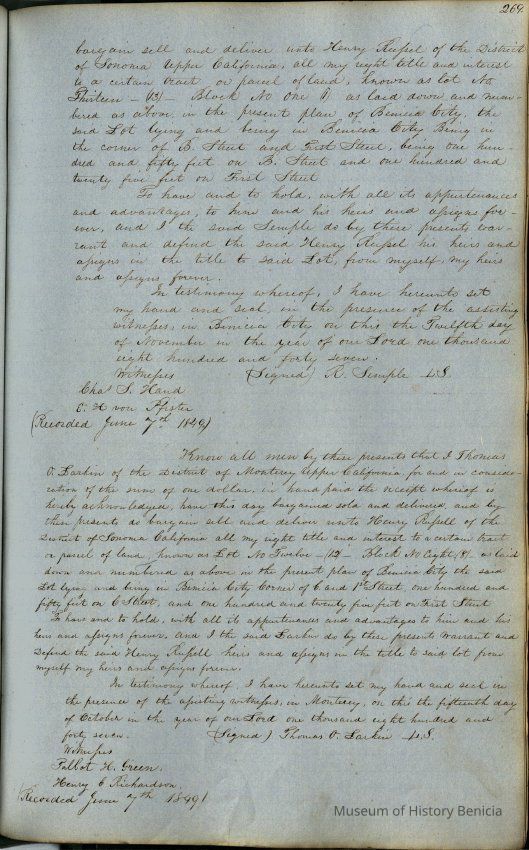 269.
bargain sell and deliver unto Henry Russel of the District
of Sonoma Upper California, all my right title and interest
to a certain tract or parcel of land, known as lot No
Thirteen - (13) - Block No One (1) as laid down and num-
bered as above in the present plan of Benicia City, the
said Lot lying and being in Benicia City Being in
the corner of B. Street and First Street, being one hun-
dred and fifty feet on B. Street and one hundred and
twenty five feet on First Street
To have and to hold, with all its appurtenances
and advantages, to him and his heirs and assigns for-
ever, and I the said Semple do by these presents war-
rant and defend the said Henry Russel his heirs and
assigns in the title to said Lot, from myself, my heirs
and assigns forever.
In testimony whereof, I have hereunto set
my hand and seal, in the presence of the assisting
witnesses, in Benicia City on this the Twelfth day
of November in the year of our Lord one thousand
eight hundred and forty seven.
Witnesses (Signed) R. Semple L.S.
Chas. S. Hand
E. H von Pfister
(Recorded June 7th 1849)
Know all men by these presents that I Thomas
O. Larkin of the District of Monterey Upper California, for and in consider-
ation of the sum of one dollar, in hand paid the receipt whereof is
hereby acknowledged, have this day bargained sold and delivered, and by
these presents do bargain sell and deliver unto Henry Russell of the
District of Sonoma California all my right title and interest to a certain tract
or parcel of land, known as Lot No Twelve - (12 - Block No Eight (8) as laid
down and numbered as above in the present plan of Benicia City the said
Lot lying and being in Benicia City Corner of C and 1st Street, one hundred and
fifty feet on C Street, and one hundred and twenty five feet on First Street
To have and to hold, with all its appurtenances and advantages to him and his
heirs and assigns forever, And I the said Larkin do by these presents warrant and
Defend the said Henry Russell heirs and assigns in the title to said lot from
myself my heirs and assigns forever.
In testimony whereof, I have hereunto set my hand and seal in
the presence of the assisting witnesses, in Monterey, on this the fifteenth day
of October in the year of our Lord one thousand eight hundred and
forty seven. (Signed) Thomas O. Larkin L.S.
Witnesses
Talbot H. Green.
Henry E Richardson.
(Recorded June 7th 1849)
Museum of History Benicia